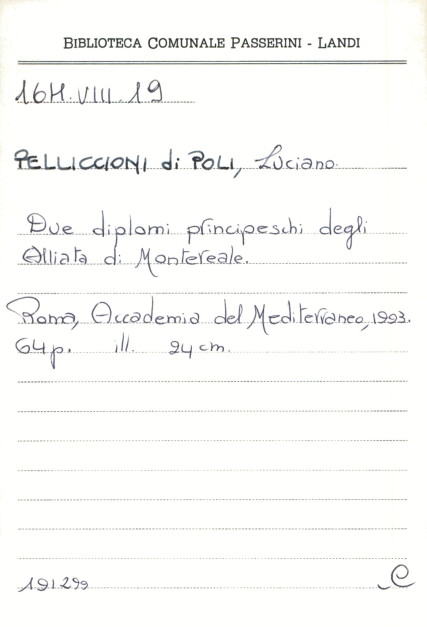 BIBLIOTECA COMUNALE PASSERINI - LANDI
16H.VIII.19
PELLICCIONI di POLI, Luciano.
Due diplomi principeschi degli
Alliata di Montereale.
Roma, Accademia del Mediterraneo, 1993.
64 p. ill. 24 cm.
191299
C